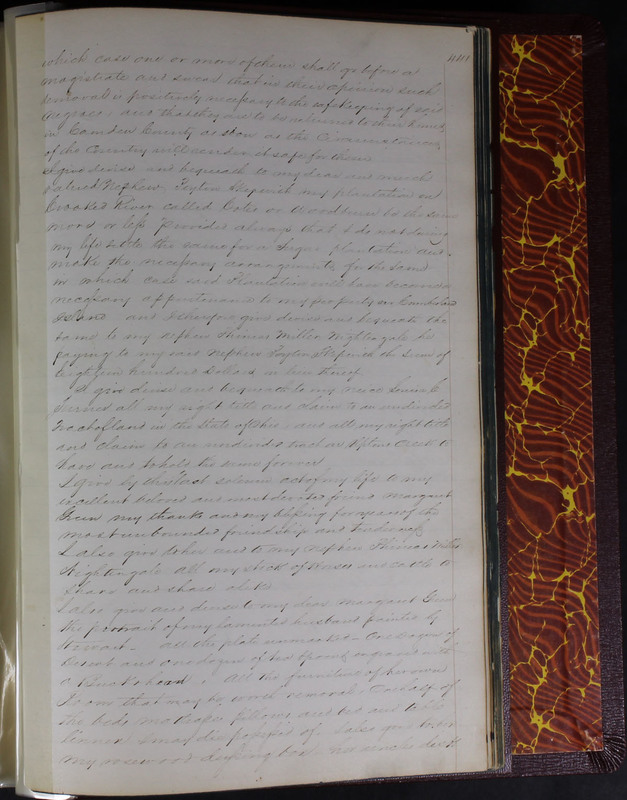 which case one or more of them shall go before a
magistrate and swear that in their opinion such
removal is positively necessary to the safe keeping of said
negroes, and that they are to be returned to their home
in Camden County as soon as the Circumstances
of the Country will render it safe for them
I give devise and bequeath to my dear and much
valued Nephew, my plantation on
Crooked River called or be the same
more or less Provided always that I do not during
my life settle the same for a Sugar plantation and
make the necessary arrangements for the same
in which case said Plantation will have become a
necessary appurtenance to my property on Cumberland
Island and I therefore give devise and bequeath the
same to my nephew Thomas Miller Nightingale he
paying to my said Nephew the sum of
Eighteen hundred Dollars in lieu thereof
I give devise and bequeath to my niece
all my right title and claim to an undivided
Tract of land in the State of Ohio, and all my right title
and claim to an undivided tract on Creek to
have and to hold the same forever
I give by this last solemn act of my life to my
excellent beloved and most devoted friend Margaret
Green my thanks and my blessing for years of the
most unbounded friendship and tenderness
I also give to her and to my nephew Thomas Miller
Nightingale all my stock of Horses and cattle to
share and share alike
I also give and devise to my dear Margaret Green
the portrait of my lamented husband painted by
Stewart - all the plate unmarked - One dozen of
Desert and one dozen of tea spoons engraved with
a head, All the furniture of her own
Room that may be worth removal - One half of
the beds matrasses pillows and bed and table
linnen I may die possessed of. I also give to her
my rosewood dressing desk